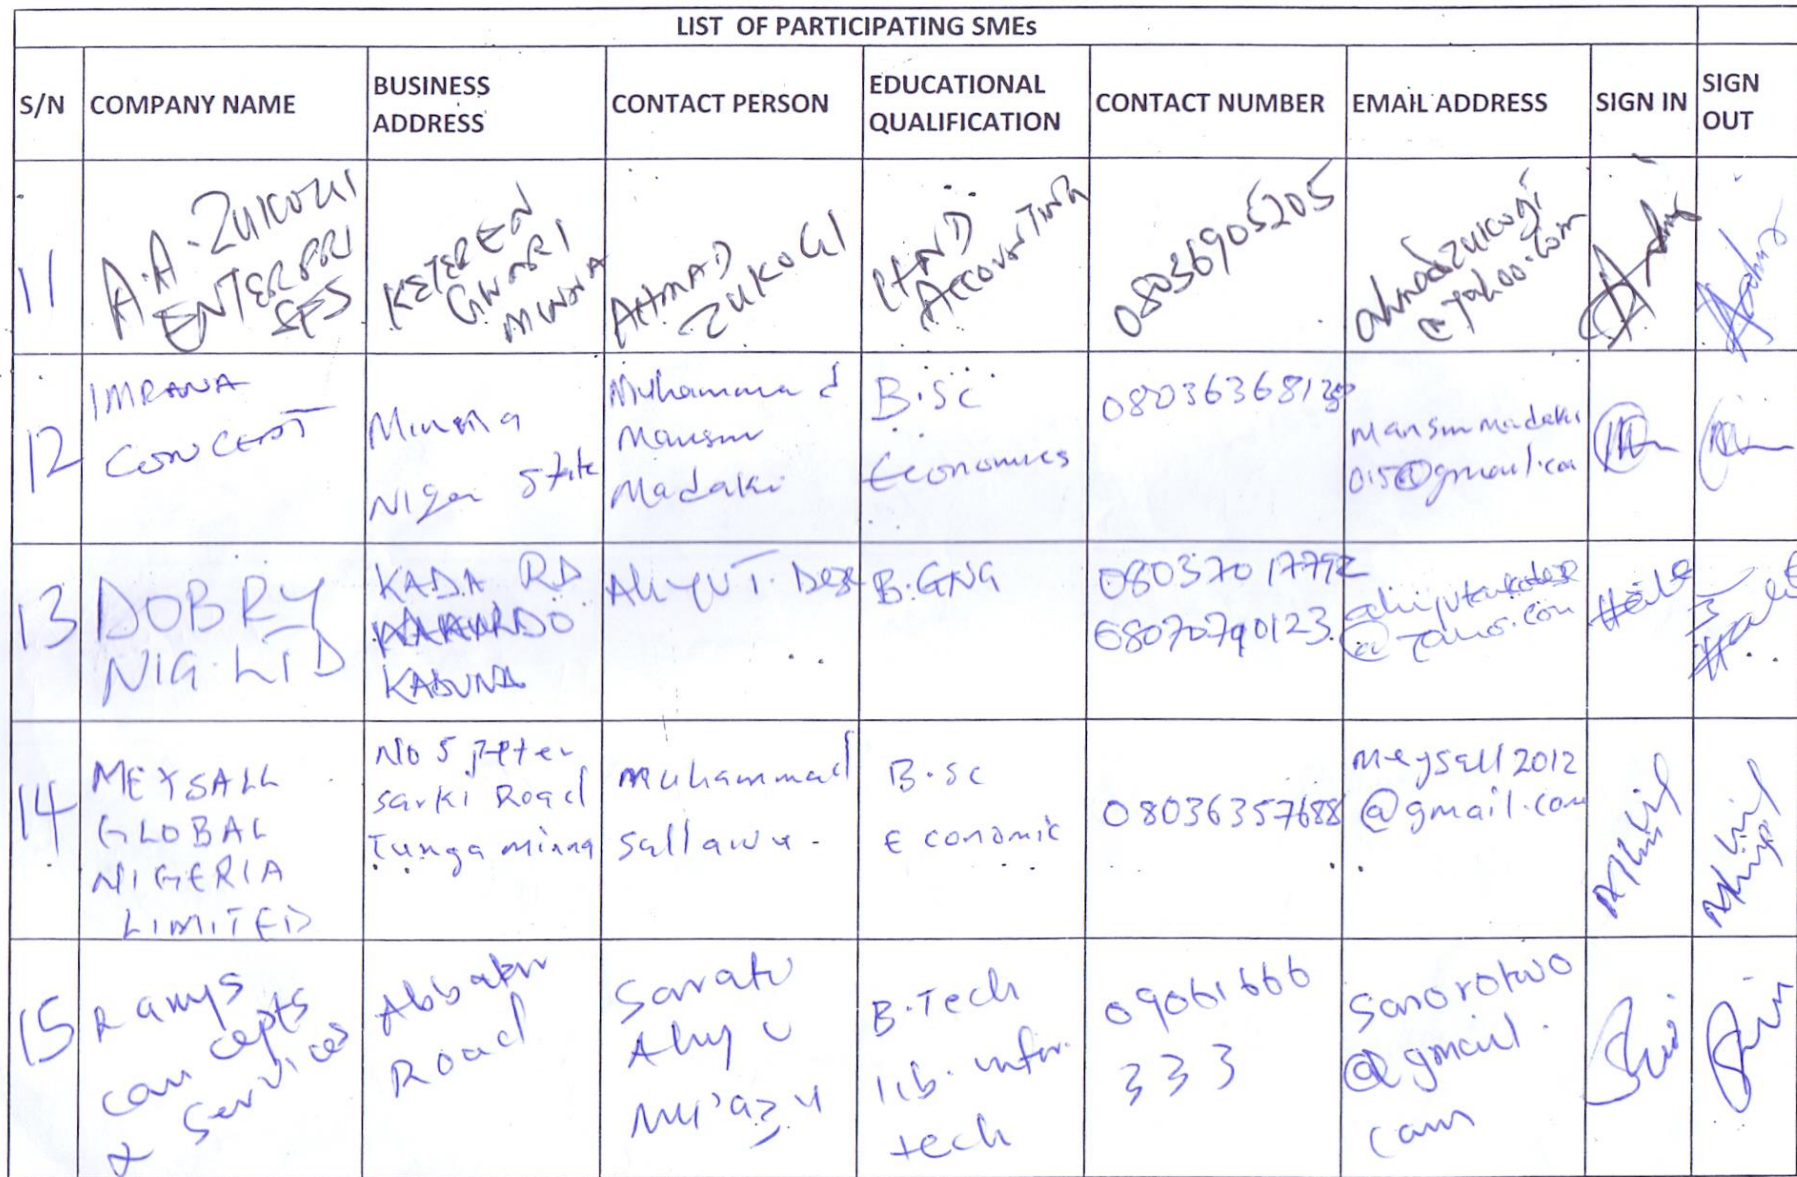 LIST OF PARTICIPATING SMEs
S/N
COMPANY NAME
BUSINESS
ADDRESS
CONTACT PERSON
EDUCATIONAL
QUALIFICATION
CONTACT NUMBER
EMAIL ADDRESS
SIGN IN
SIGN
OUT
11
A.A. ZUKOGI
ENTERPRI
SES
KETEREN
GWARI
MINNA
AHMAD
ZUKOGI
HND
ACCOUNTING
08036905205
ahmadzukogi
@yahoo.com
12
IMRANA
CONCEPT
Minna
Niger State
Muhammad
Mansur
Madaki
B.Sc
Economics
Mansurmadaki
015@gmail.com
13
DOBRY
NIG. LTD
KADA RD
KADUNA
B.GNG
08037017792
08070790123
14
MEYSALL
GLOBAL
NIGERIA
LIMITED
No 5 peter
sarki Road
Tunga minna
muhammad
Sallawu.
B.sc
Economic
08036357688
meysall2012
@gmail.com
15
Ramys
concepts
& services
Road
Aliyu
Mu'azu
B.Tech
lib. infor.
tech
09061666
333
Sanorotwo
@gmail.
com